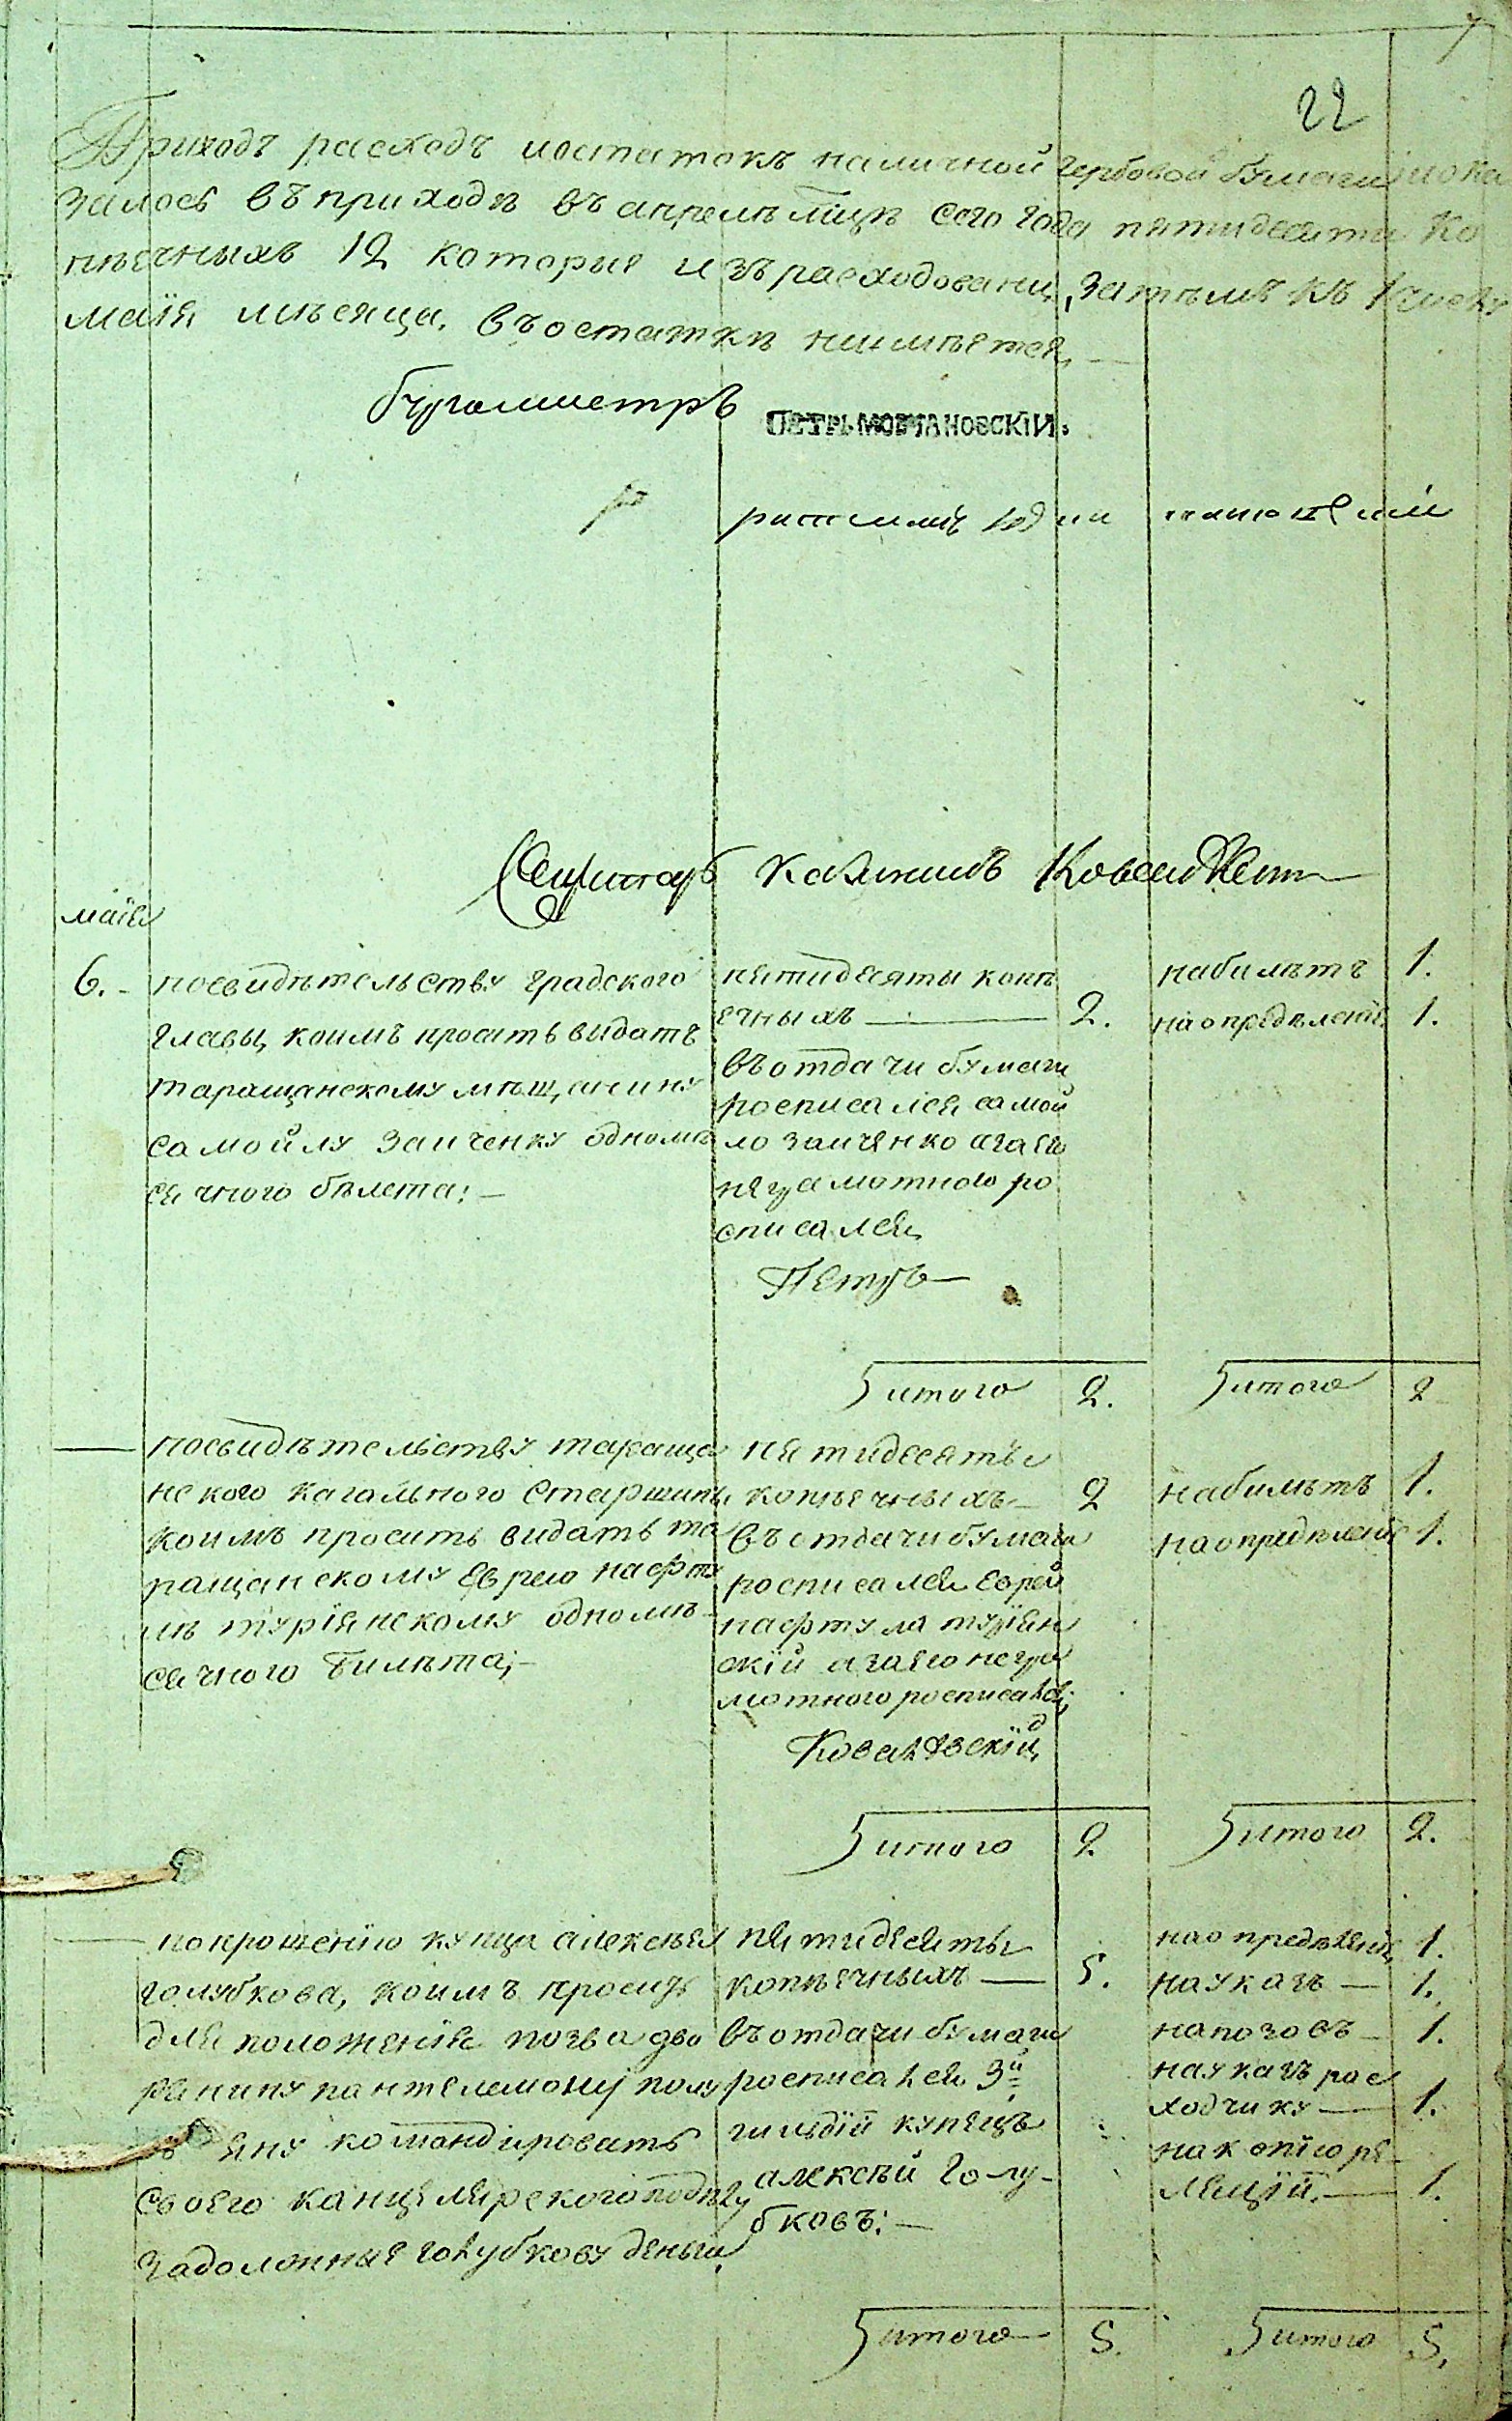 22
Приходъ расходъ иостатокъ наличной гербовой бумаги пока
залось въ приходѣ въ апрелѣ мцѣ сего года пятидесяти ко
пѣечныхъ 12 которые изърасходовани, затѣмъ къ 1 числу
маія мѣсяца. въостаткѣ ниимѣется,—
бургомистръ ПЕТРЪ МОВЧАНОВСКІИ.
ратманъ
Секретарь
маія
6.- посвидѣтельству градского
главы, коимъ просить видать
таращанскому мѣщанину
самойлу заиченку одномѣ
сячного бѣлета:—
пятидесяты копѣ
ечныхъ — 2.
въотдачи бумаги
росписался само
ло заиченко аза его
неграмотного ро
списался
Петръ
набилѣтъ 1.
наопредѣленіе 1.
итого 2. итого 2
— посвидѣтельству тараща
нского кагального старшины
коимъ просить видать та
ращанскому Еврею нафту
лѣ турiянскому одномѣ-
сячного билѣта;—
пятидесяты
копѣечныхъ— 2
въотдачи бумаги
росписался еврей
нафтула турiян
скiй азаего негра
мотного росписался
Ковалѣвскій
набилѣтъ 1.
наопредѣленіе 1.
итого 2. итого 2.
— попрошенiю купца алексѣя
голубкова, коимъ просить
для положенiя позва дво
рянину пантелемону полу
яну командировать
своего канцелярского
задолжные голубкову деньги,
пятидесяты
копѣечныхъ — 5.
въотдачи бумаги
росписался 3й
гильдiи купецъ
алексѣй голу-
бковъ:—
наопредѣленіе 1.
науказъ — 1.
напозовъ — 1.
науказъ рос
ходчику — 1.
накопiю ре-
ляцiи.— 1.
итого 5. итого 5.